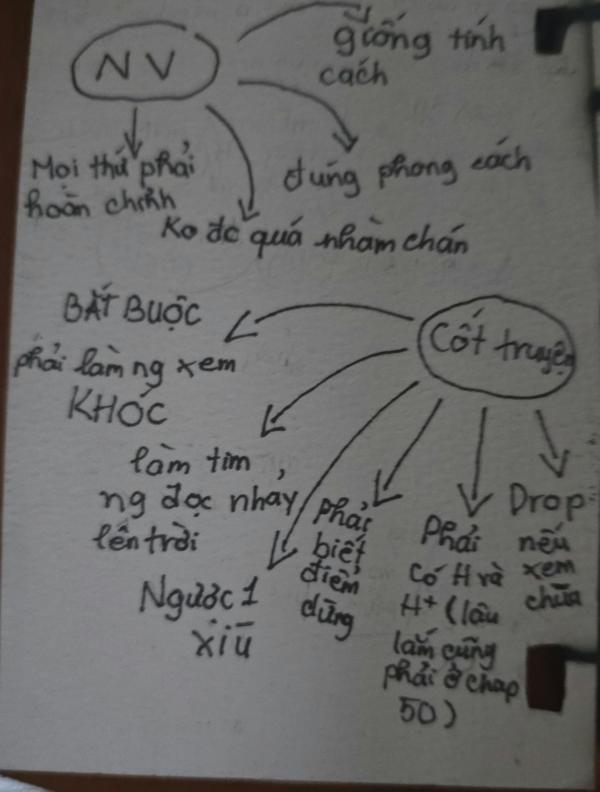 NV
giống tính
cách
đúng phong cách
Mọi thứ phải
hoàn chỉnh
Ko đc quá nhàm chán
Cốt truyện
BẮT BUỘC
phải làm ng xem
KHÓC
làm tim
ng đọc nhảy
lên trời
Ngược 1
xíu
Phải
biết
điểm
dừng
Phải
có H và
H+ (lâu
lắm cũng
phải ở chap
50)
Drop
nếu
xem
chùa